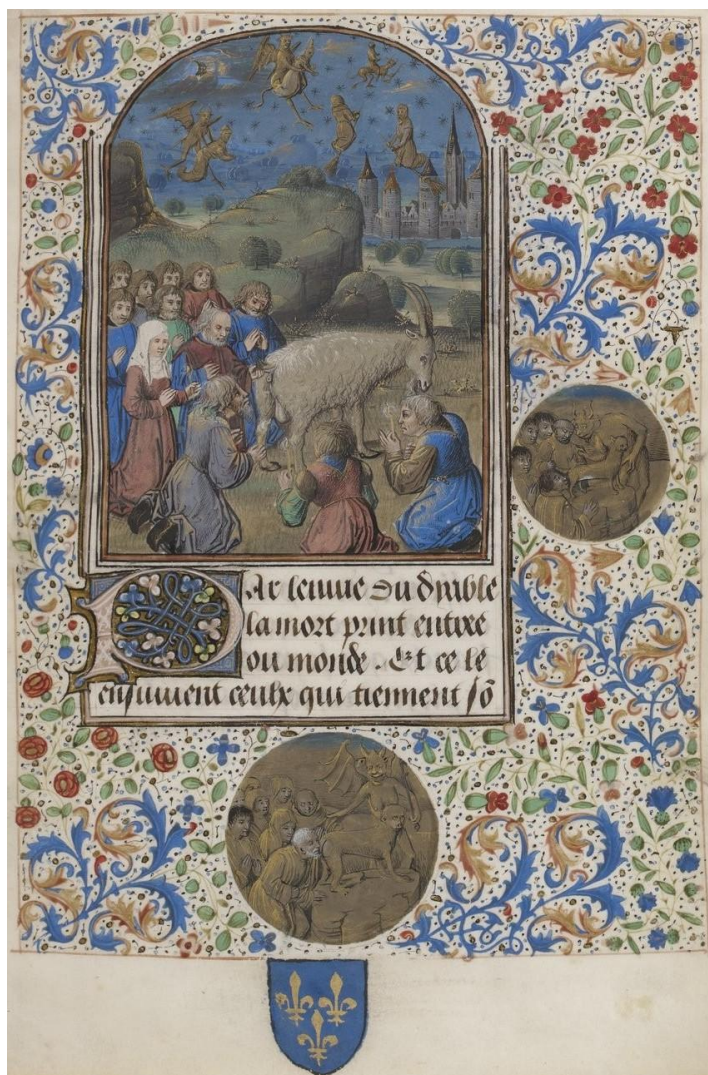 Par lenuie du dyable
la mort print entree
ou monde . Et ce le
ensuiuent ceulx qui tiennent sō